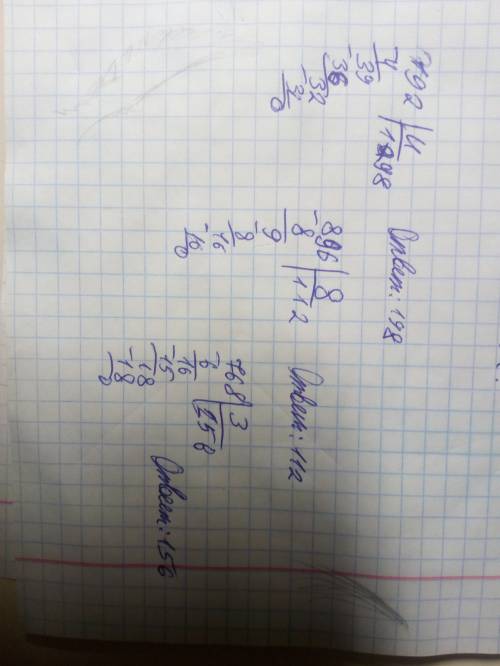 792 | 4
-4 | 198
-39
36
-32
32
0
Ответ: 198
-896 | 8
8 | 112
-9
8
-16
16
0
Ответ: 112
768 | 3
-6 | 256
16
-15
18
-18
0
Ответ: 156